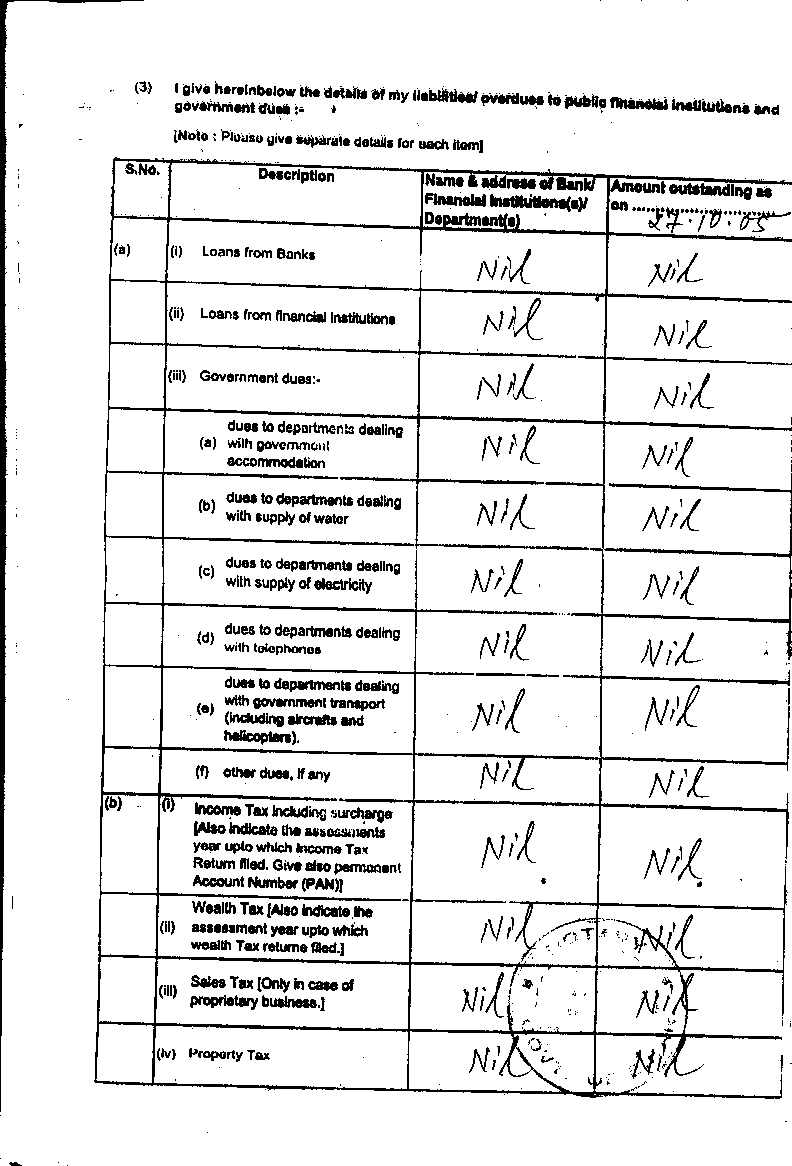 (3) I give hereinbelow the details of my liabilities/ overdues to public financial institutions and
government dues :-
[Note : Please give separate details for each item]
S.No. Description Name & address of Bank/ Amount outstanding as
Financial Institutions(s)/ on ..............................
Department(s) 27.10.05
(a) (i) Loans from Banks Nil Nil
(ii) Loans from financial Institutions Nil Nil
(iii) Government dues:- Nil Nil
dues to departments dealing
(a) with government Nil Nil
accommodation
(b) dues to departments dealing Nil Nil
with supply of water
(c) dues to departments dealing Nil Nil
with supply of electricity
(d) dues to departments dealing Nil Nil
with telephones
dues to departments dealing
(e) with government transport Nil Nil
(including aircrafts and
helicopters).
(f) other dues, if any Nil Nil
(b) (i) Income Tax including surcharge
[Also indicate the assessments
year upto which Income Tax Nil Nil
Return filed. Give also permanent
Account Number (PAN)]
Wealth Tax [Also indicate the
(ii) assessment year upto which Nil Nil
wealth Tax returne filed.]
(iii) Sales Tax [Only in case of Nil Nil
proprietary business.]
(iv) Property Tax Nil Nil
NOTARY
GOVT